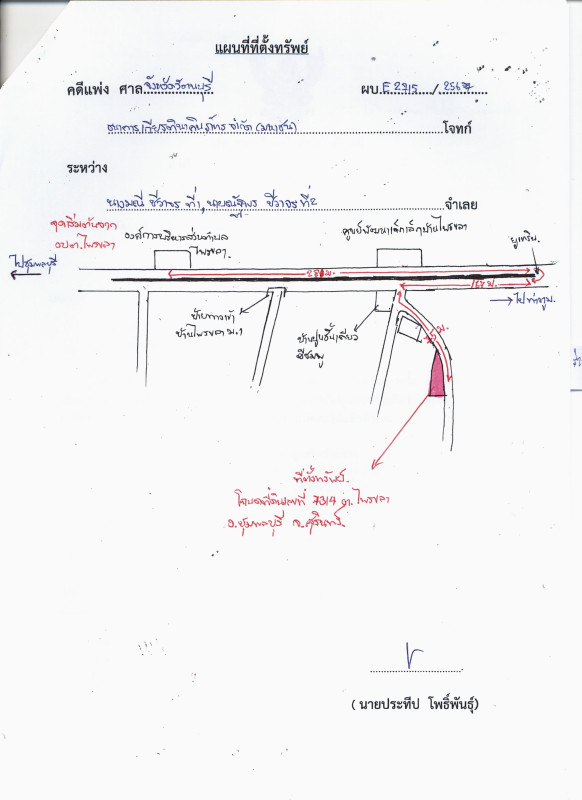 แผนที่ที่ตั้งทรัพย์
คดีแพ่ง ศาลจังหวัดรัตนบุรี ผบ.E 2315 / 256
ธนาคารเกียรตินาคินภัทร จำกัด (มหาชน) โจทก์
ระหว่าง
ชีวาจร ที่ 1, ชีวาจร ที่ 2 จำเลย
จุดเริ่มต้นจาก
อบต.ไพรขลา
องค์การบริหารส่วนตำบล
ไพรขลา.
ศูนย์พัฒนาเด็กเล็กบ้านไพรขลา
ยูเทริน.
ไปชุมพลบุรี
280 ม.
ไปท่าตูม.
ป้ายทางเข้า
บ้านไพรขลา ม.1
บ้านปูนชั้นเดียว
สีชมพู
ที่ตั้งทรัพย์.
โฉนดที่ดินเลขที่ 7314 ต.ไพรขลา
อ.ชุมพลบุรี จ.สุรินทร์
( นายประทีป โพธิ์พันธุ์)